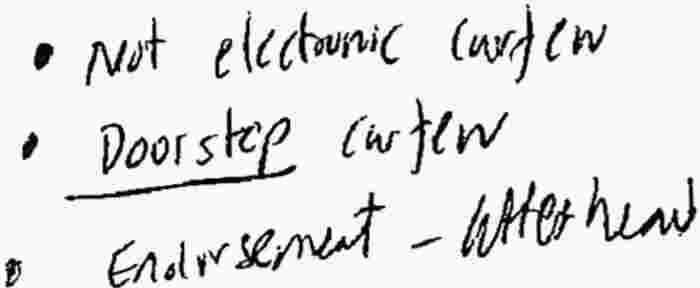 • Not electronic curfew
• Doorstep curfew
• Endorsement - letterhead